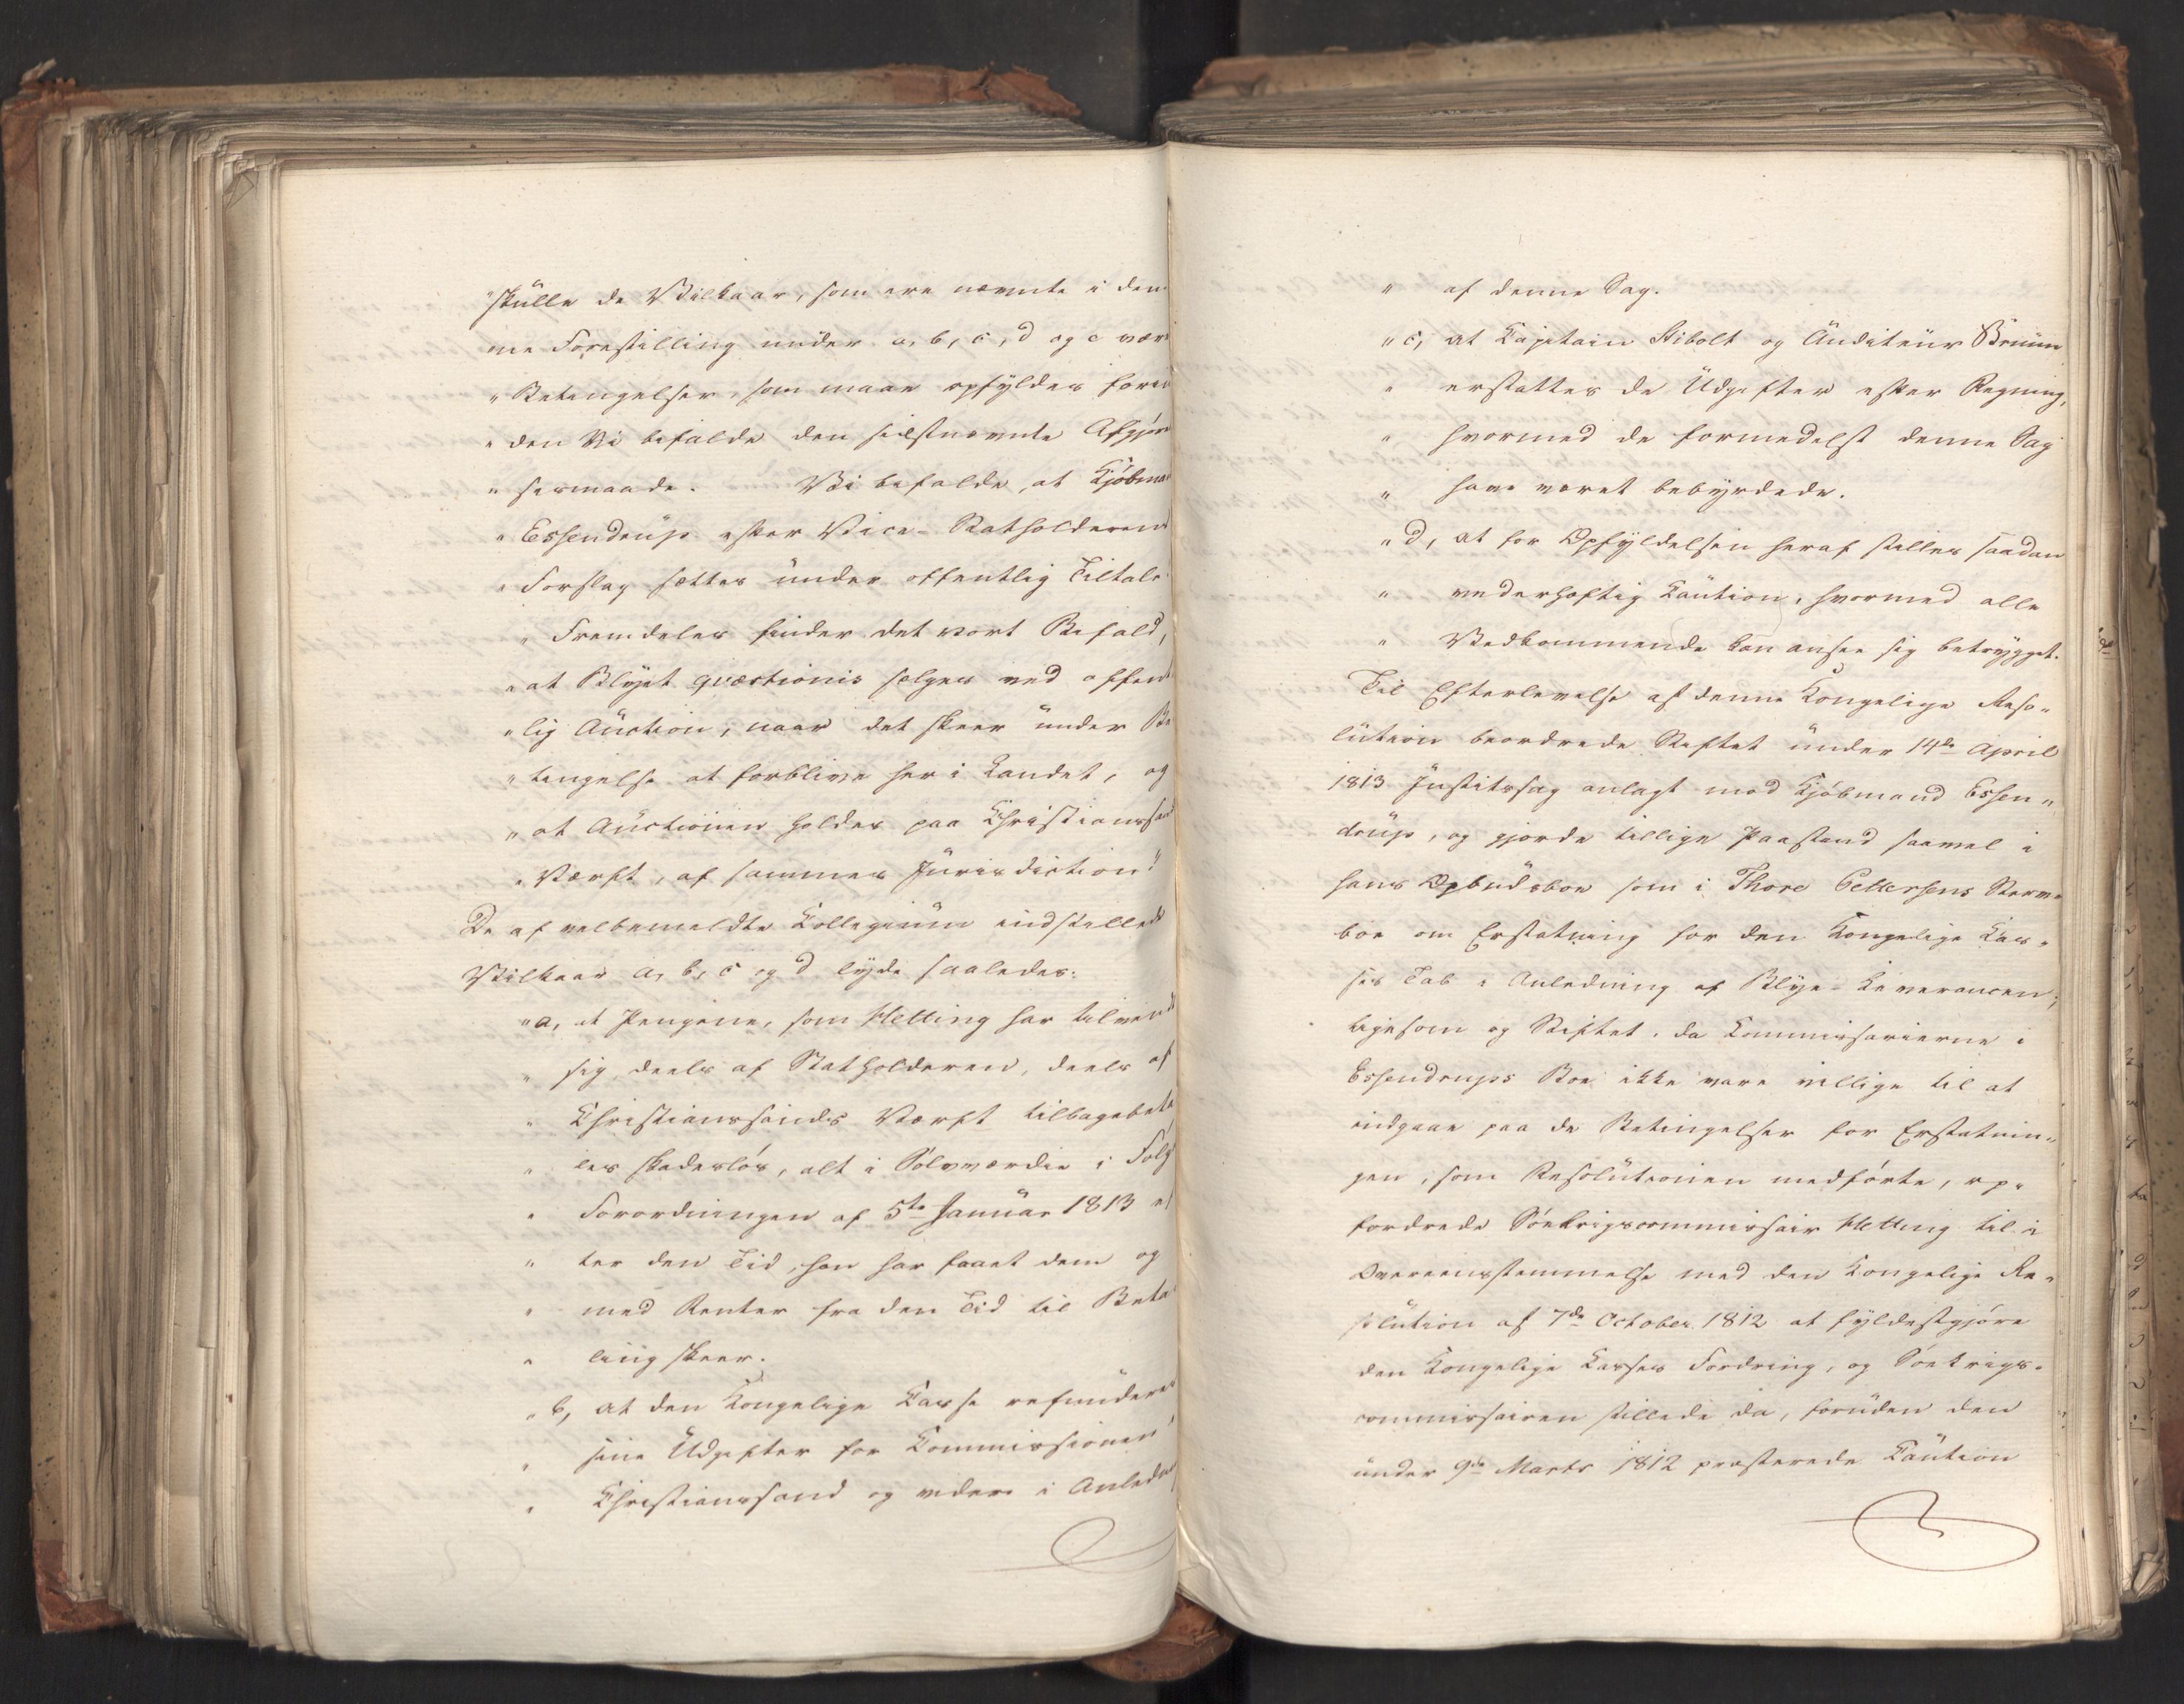 "skulle de Vilkaar, som ere nævnte i den
ne Forestilling under a, b, c, d og e vær
"Betingelser, som maae opfyldes foren
"den Vi befalde den sidstnævnte Afgjør
"selsmaade. Vi befalde, at Kjøbma
"Essendrup efter Vice-Statholderens
"Forslag sættes under offentlig Tiltale
"Fremdeles finder det vort Bifald,
"at Blyet qvæstionis sælges ved offent
"lig Auction, naar det skeer under Be
"tingelse at forblive her i Landet, og
"at Auctionen holdes paa Christianssand
"Værft, af sammes Jurisdiction"
De af velbemeldte Collegium indstillede
Vilkaar a, b, c og d lyde saaledes:
"a, at Pengene, som Hetting har tilvendt
" sig, deels af Statholderen, deels af
" Christianssands Værft tilbagebeta
" les skadesløs, alt i Sølvværdie i Følg
" Forordningen af 5te Januar 1813 ef
" ter den Tid, han har faaet dem og
" med Renter fra den Tid til Beta
" ling skeer.
"b, at den Kongelige Casse refunderes
" sine Udgifter for Commissionen i
" Christianssand og videre i Anledn
" af denne Sag.
"c, at Capitain Stibolt og Auditeur Bruun
" erstattes de Udgifter efter Regning,
" hvormed de formedelst denne Sag
" have været bebyrdede.
"d, at for Opfyldelsen heraf stilles saadan
" vederhæftig Caution, hvormed alle
" Vedkommende kan ansee sig betrygget.
Til Efterlevelse af denne Kongelige Reso-
lution beordrede Stiftet under 14de April
1813 Justitssag anlagt mod Kjøbmand Essen-
drup, og gjorde tillige Paastand saavel i
hans Opbudsboe som i Thore Pettersens Sterv-
boe om Erstatning for den Kongelige Cas-
ses Tab i Anledning af Blye-Leverancen;
ligesom og Stiftet, da Commissarierne i
Essendrups Boe ikke vare villige til at
indgaae paa de Betingelser for Erstatnin-
gen, som Resolutionen medførte, op-
fordrede Søekrigscommissair Hetting til i
Overeensstemmelse med den Kongelige Re-
solution af 7de October 1812 at fyldestgjøre
den Kongelige Casses Fordring, og Søekrigs-
commissairen stillede da, foruden den
under 9de Marts 1812 præsterede Caution